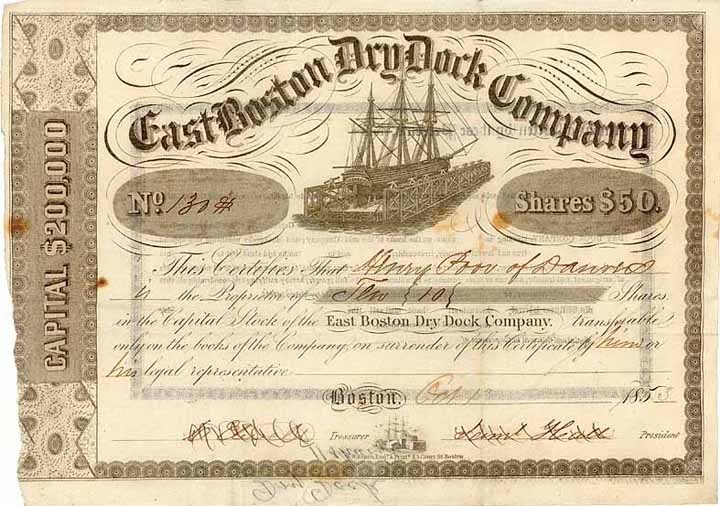 East Boston Dry Dock Company
CAPITAL $200,000
No. 130
Shares $50.
This Certifies That Henry Poor of Danvers
is the Proprietor of Ten {10} Shares
in the Capital Stock of the East Boston Dry Dock Company. transferable
only on the books of the Company, on surrender of this Certificate by him or
his legal representative
Boston, Oct 1 185
Treasurer President